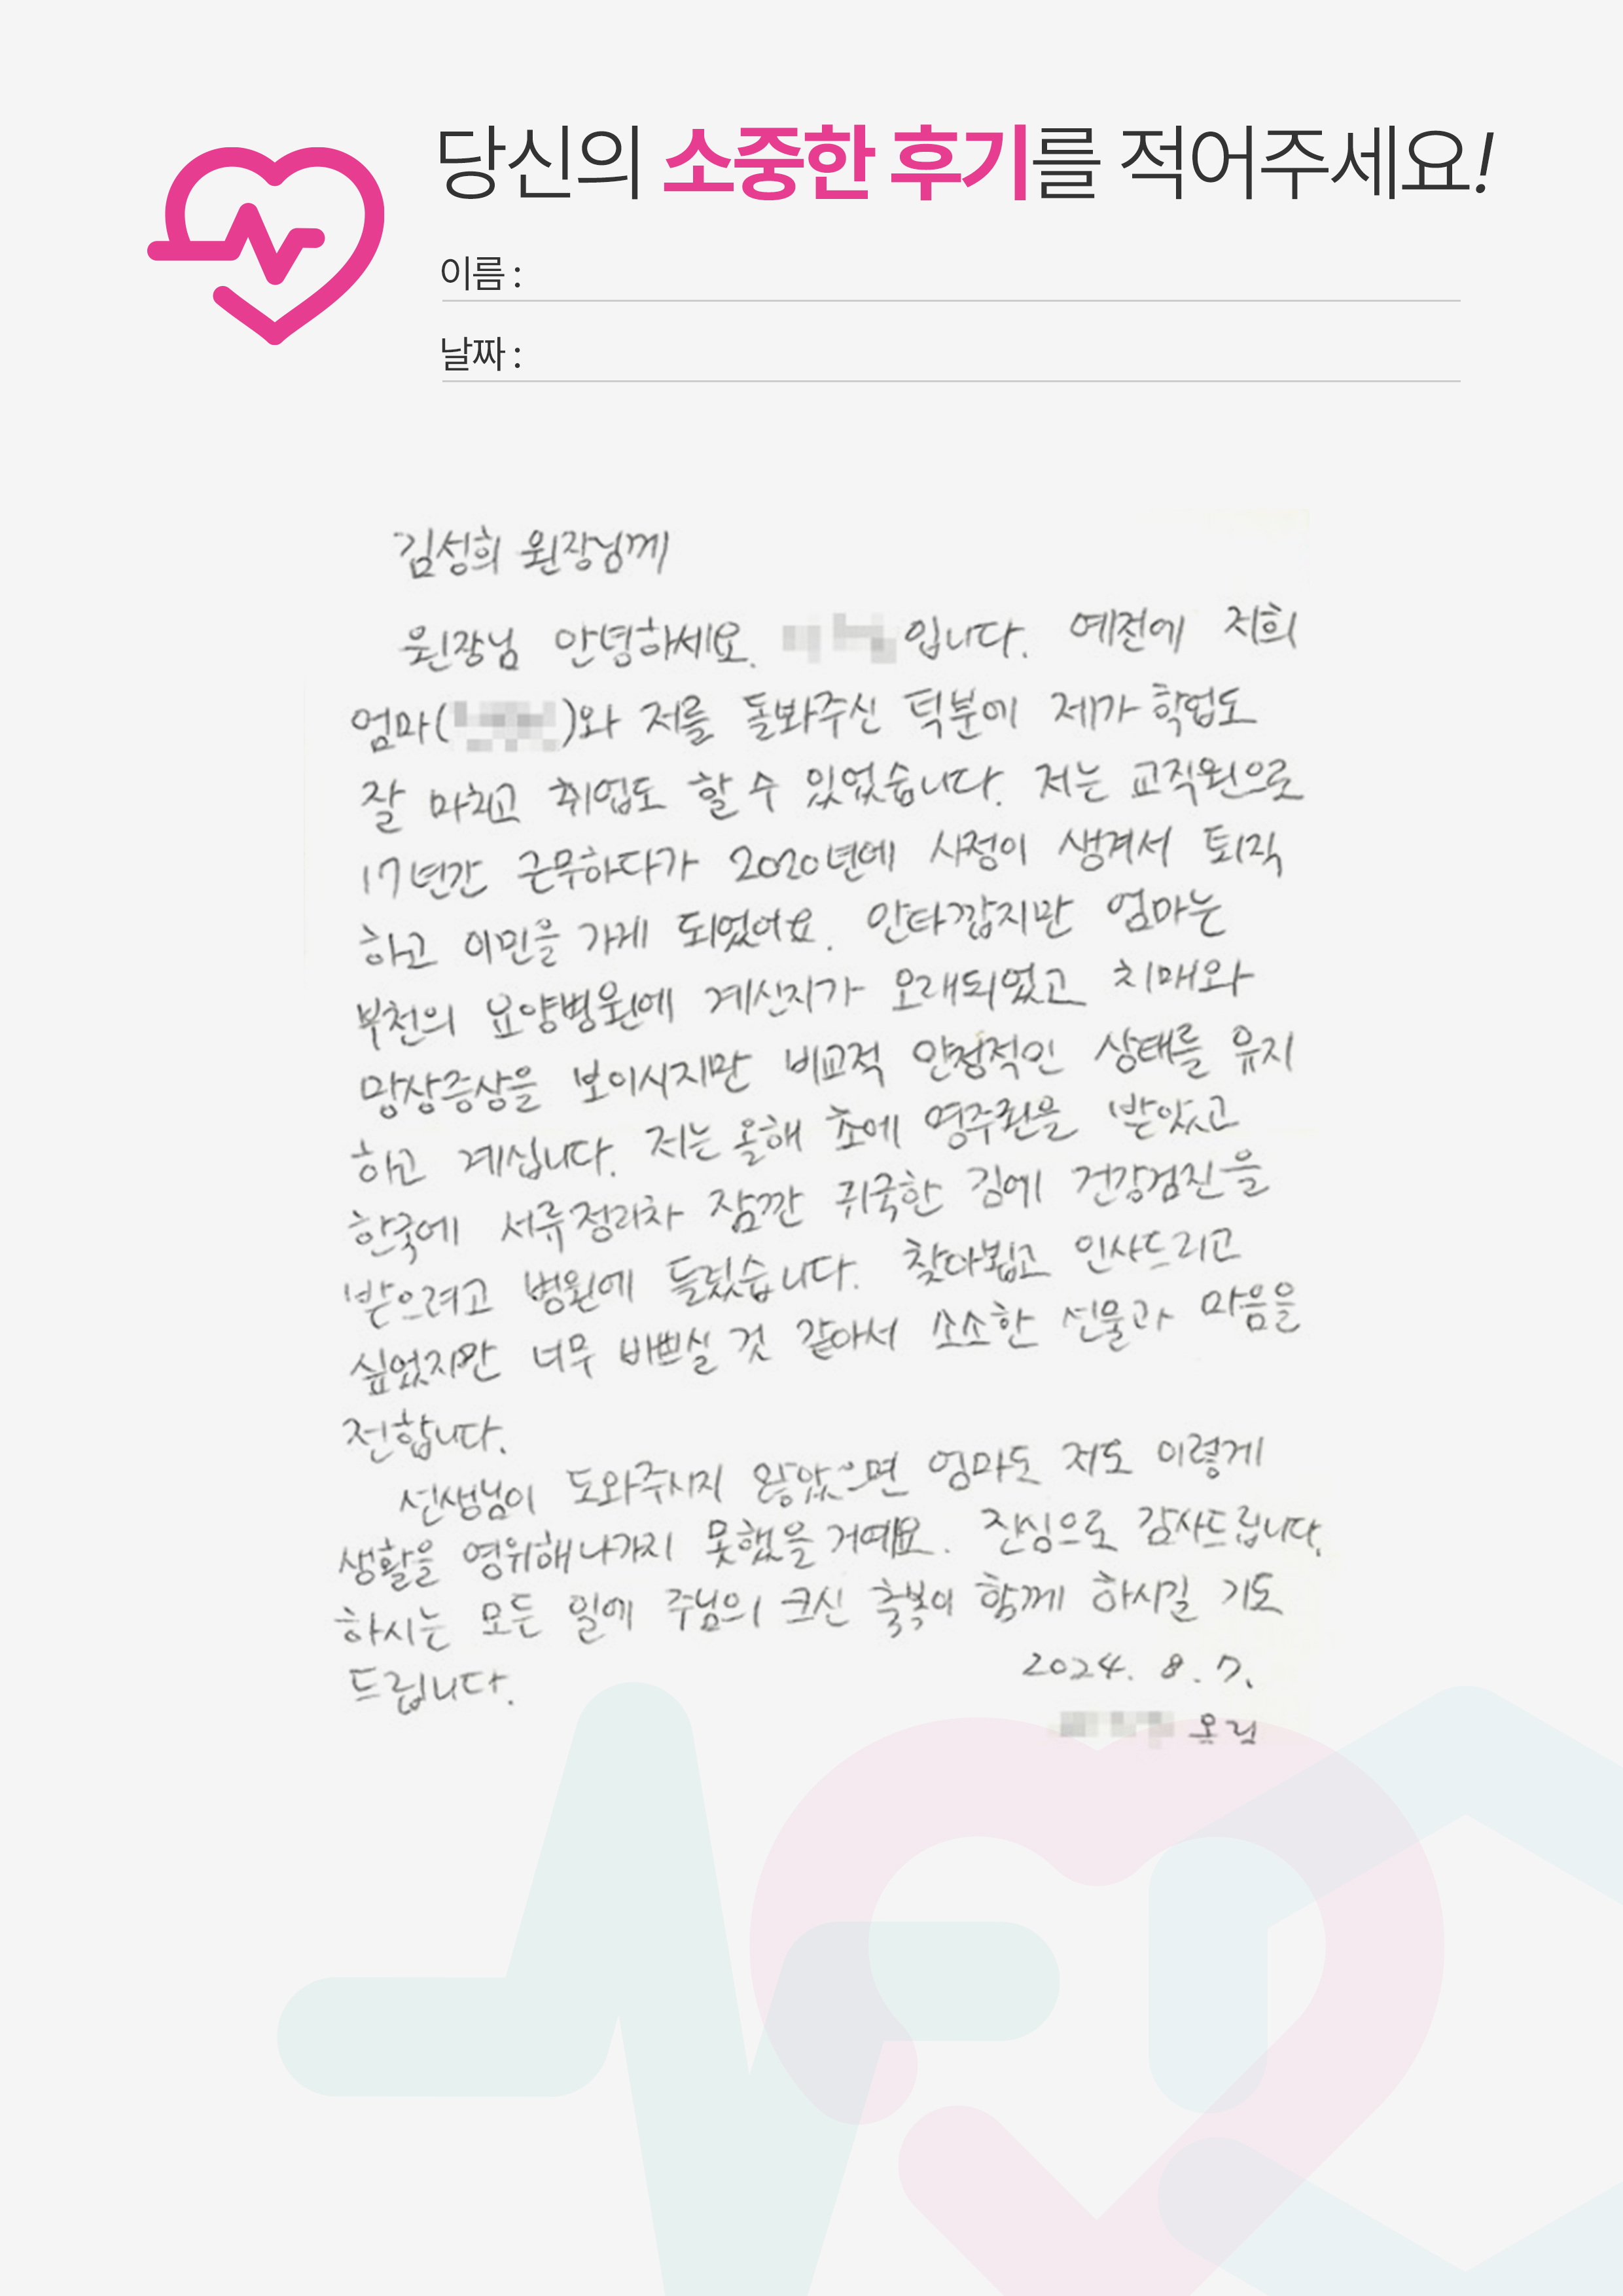 당신의 소중한 후기를 적어주세요!
이름 :
날짜 :
김성희 원장님께
원장님 안녕하세요. 입니다. 예전에 저희
엄마( )와 저를 돌봐주신 덕분에 제가 학업도
잘 마치고 취업도 할 수 있었습니다. 저는 교직원으로
17년간 근무하다가 2020년에 사정이 생겨서 퇴직
하고 이민을 가게 되었어요. 안타깝지만 엄마는
부천의 요양병원에 계신지가 오래되었고 치매와
망상증상을 보이시지만 비교적 안정적인 상태를 유지
하고 계십니다. 저는 올해 초에 영주권을 받았고
한국에 서류정리차 잠깐 귀국한 김에 건강검진을
받으려고 병원에 들렀습니다. 찾아뵙고 인사드리고
싶었지만 너무 바쁘실 것 같아서 소소한 선물과 마음을
전합니다.
선생님이 도와주시지 않았으면 엄마도 저도 이렇게
생활을 영위해나가지 못했을 거예요. 진심으로 감사드립니다.
하시는 모든 일에 주님의 크신 축복이 함께 하시길 기도
드립니다.
2024. 8. 7.
올림